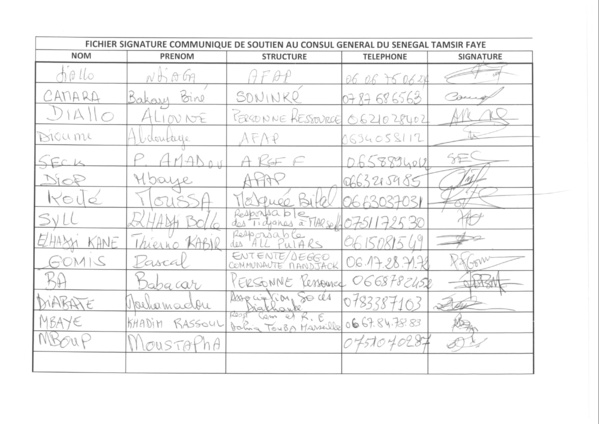 FICHIER SIGNATURE COMMUNIQUE DE SOUTIEN AU CONSUL GENERAL DU SENEGAL TAMSIR FAYE
NOM PRENOM STRUCTURE TELEPHONE SIGNATURE
Diallo NDIAGA AFAP
CAMARA Bakary SONINKÉ 0787686563
DIALLO ALIOUNE PERSONNE RESSOURCE 0621028402
Abdoulaye AFAP 0634058112
SECK P. AMADOU 0658894012 SEC
DIOP Mbaye AFAP 0663215985
KOITÉ MOUSSA Mosquée Bilal 0663037031
SYLL ELHADJ Responsable
des Tidjanes à 0751172530
ElHADJI KANE Thierno KABIR Responsable
des ALL PULARS 0615081549
GOMIS Pascal ENTENTE/SEGGO
COMMUNAUTÉ MANDJACK 06.17.28.71.78
BA Babacar PERSONNE Ressource
DIABATE Mouhamadou 0783387103
MBAYE KHADIM RASSOUL
TOUBA Marseille 06.67.84.73.83
MBOUP MOUSTAPHA 0751070287